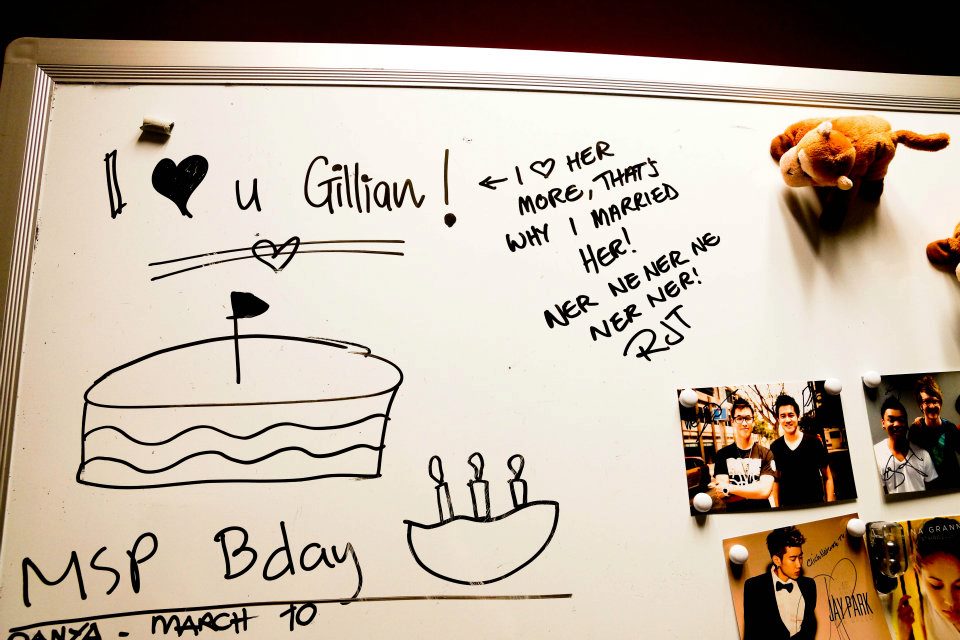 I ♥ u Gillian!
← I ♡ HER
MORE, THAT'S
WHY I MARRIED
HER!
NER NE NER NE
NER NER!
RJT
MSP Bday
DANYA - MARCH 10
JAY PARK